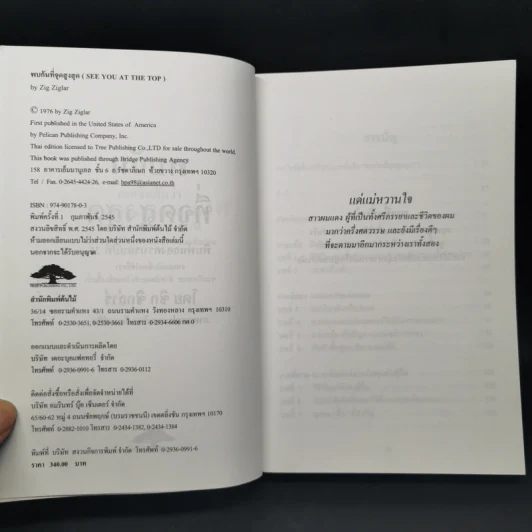 พบกันที่จุดสูงสุด ( SEE YOU AT THE TOP )
by Zig Ziglar
© 1976 by Zig Ziglar
First published in the United States of America
by Pelican Publishing Company, Inc.
Thai edition licensed to Tree Publishing Co.,LTD for sale throughout the world.
This book was published through Bridge Publishing Agency
158 อาคารเอ็มมาบูลย ชั้น 6 ถ.รัชดาภิเษก ห้วยขวาง กรุงเทพฯ 10320
Tel / Fax. 0-2645-4424-26, e-mail: bpa98@asianet.co.th
ISBN : 974-90178-0-3
พิมพ์ครั้งที่ 1 กุมภาพันธ์ 2545
สงวนลิขสิทธิ์ พ.ศ. 2545 โดย บริษัท สำนักพิมพ์ต้นไม้ จำกัด
ห้ามลอกเลียนแบบไม่ว่าส่วนใดส่วนหนึ่งของหนังสือเล่มนี้
นอกจากจะได้รับอนุญาต
สำนักพิมพ์ต้นไม้
36/14 ซอยรามคำแหง 43/1 ถนนรามคำแหง วังทองหลาง กรุงเทพฯ 10310
โทรศัพท์ 0-2530-3651, 0-2530-3661 โทรสาร 0-2934-6606 กด 0
ออกแบบและดำเนินการผลิตโดย
บริษัท เดอะบุคแฟคทอรี่ จำกัด
โทรศัพท์ 0-2936-0991-6 โทรสาร 0-2936-0112
ติดต่อสั่งซื้อหรือสั่งเพื่อจัดจำหน่ายได้ที่
บริษัท อมรินทร์ บุ๊ค เซ็นเตอร์ จำกัด
65/60-62 หมู่ 4 ถนนชัยพฤกษ์ (บรมราชชนนี) เขตตลิ่งชัน กรุงเทพฯ 10170
โทรศัพท์ 0-2882-1010 โทรสาร 0-2434-1382, 0-2434-1384
พิมพ์ที่ บริษัท สงวนกิจการพิมพ์ จำกัด โทรศัพท์ 0-2936-0991-6
ราคา 340.00 บาท
แด่แม่หวานใจ
สาวผมแดง ผู้ที่เป็นทั้งศรีภรรยาและชีวิตของผม
มากว่าครึ่งศตวรรษ และยังมีเรื่องดีๆ
ที่จะตามมาอีกมากระหว่างเราทั้งสอง